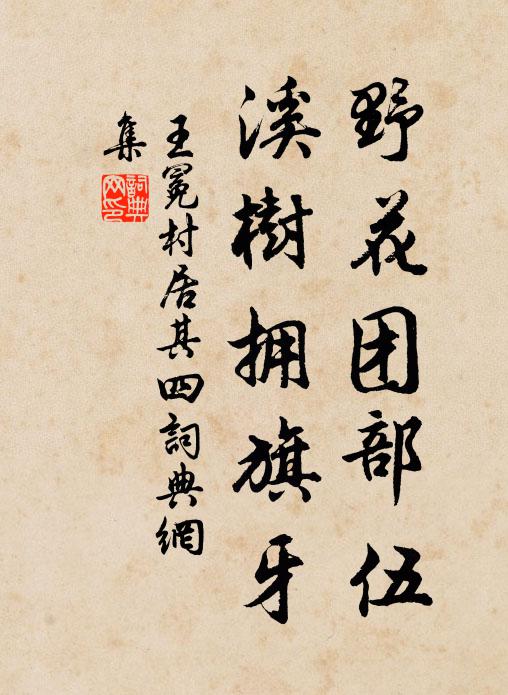 野花团部伍
溪樹拥旗牙
王冕村居其四詞典網
集
詞典
网印